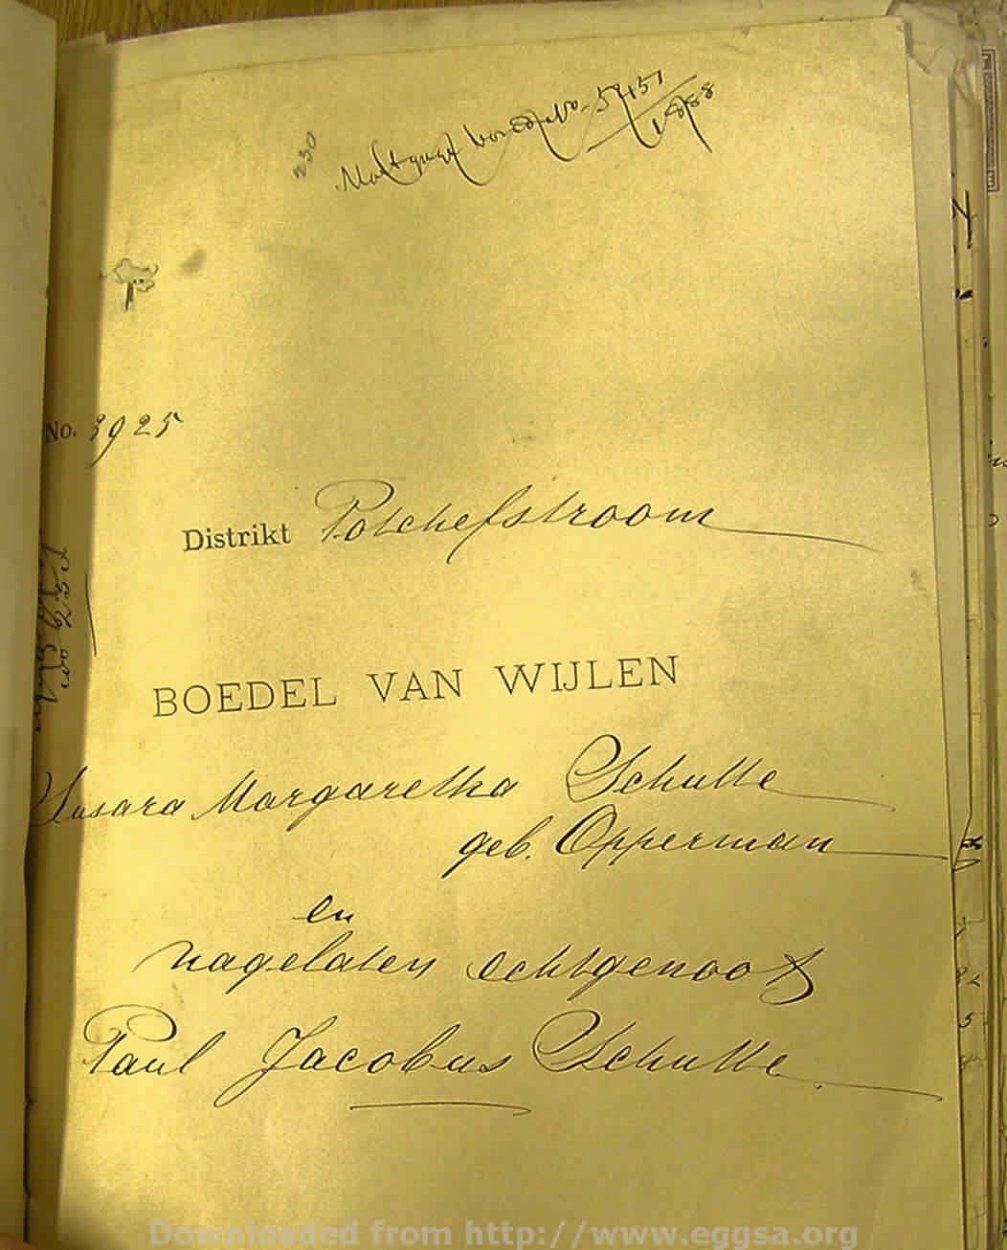 230
No. 5451/1888
No. 3925
Distrikt Potchefstroom
BOEDEL VAN WIJLEN
Susara Margaretha Schutte
geb. Opperman
en
nagelaten echtgenoot
Paul Jacobus Schutte
Downloaded from http://www.eggsa.org